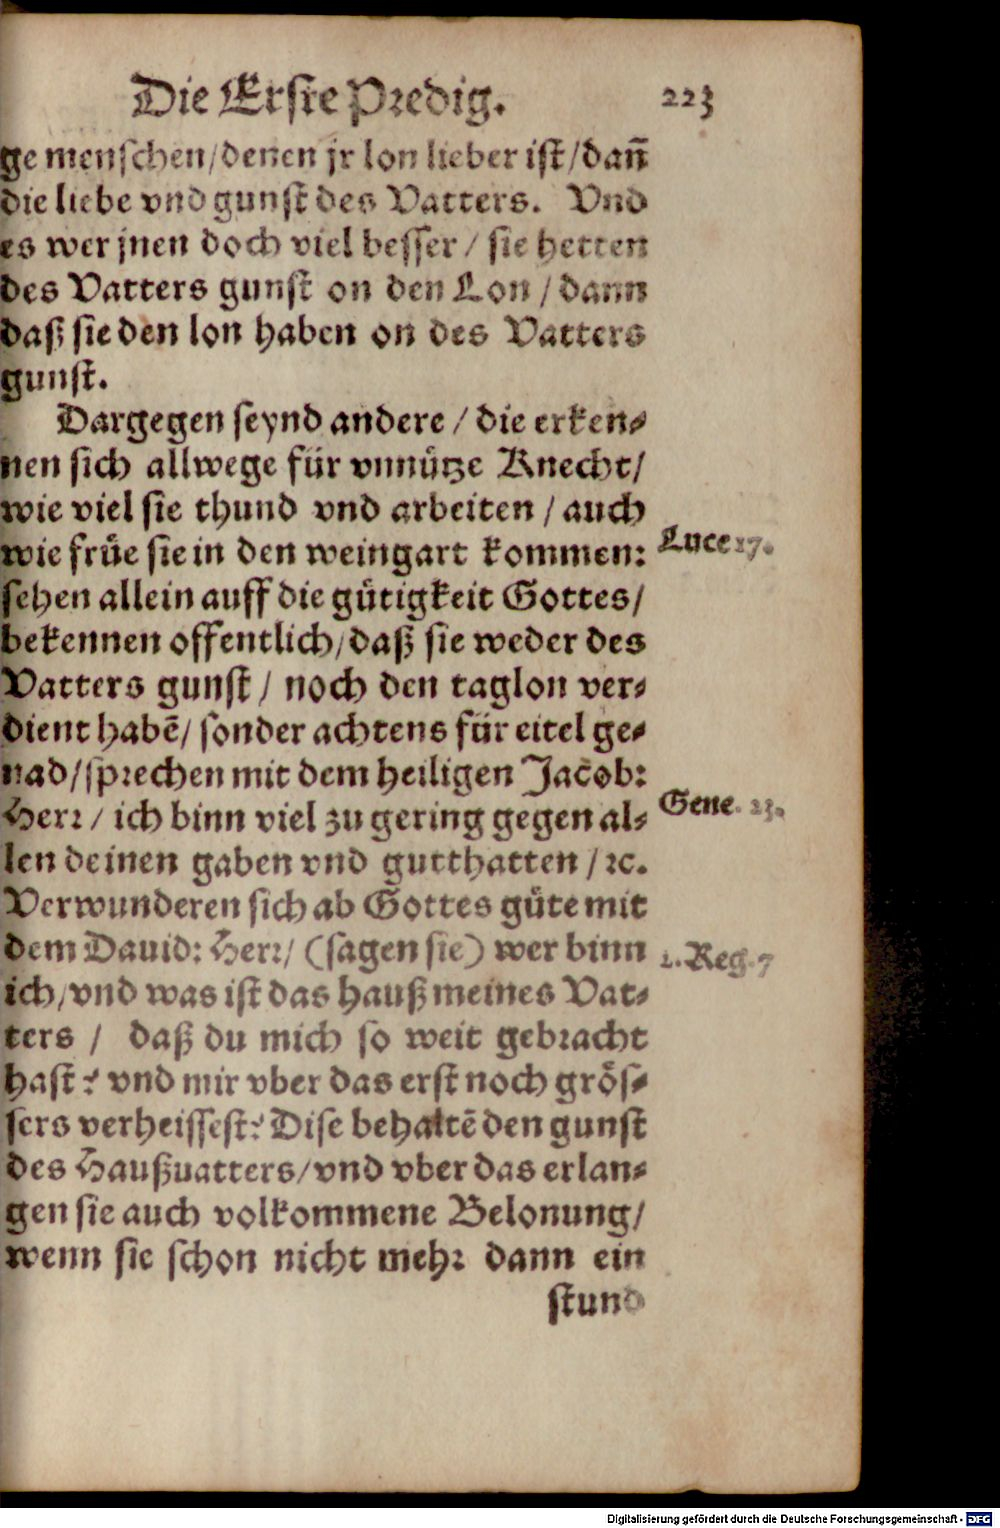 Die Erste Predig. 223
ge menschen/denen jr lon lieber ist/dañ
die liebe vnd gunst des Vatters. Vnd
es wer jnen doch viel besser / sie hetten
des Vatters gunst on den Lon / dann
daß sie den lon haben on des Vatters
gunst.
Dargegen seynd andere / die erken⸗
nen sich allwege für vnnütze Knecht/
wie viel sie thund vnd arbeiten / auch
wie früe sie in den weingart kommen:
Luce 17.
sehen allein auff die gütigkeit Gottes/
bekennen offentlich/daß sie weder des
Vatters gunst / noch den taglon ver⸗
dient habẽ/ sonder achtens für eitel ge⸗
nad/sprechen mit dem heiligen Jacob:
Herr / ich binn viel zu gering gegen al⸗
Gene. 23.
len deinen gaben vnd gutthatten / ꝛc.
Verwunderen sich ab Gottes güte mit
dem Dauid: Herr/ (sagen sie) wer binn
1. Reg. 7
ich/vnd was ist das hauß meines Vat⸗
ters / daß du mich so weit gebracht
hast? vnd mir vber das erst noch grös⸗
sers verheissest? Dise behaltẽ den gunst
des Haußuatters/vnd vber das erlan⸗
gen sie auch volkommene Belonung/
wenn sie schon nicht mehr dann ein
stund
Digitalisierung gefördert durch die Deutsche Forschungsgemeinschaft - DFG